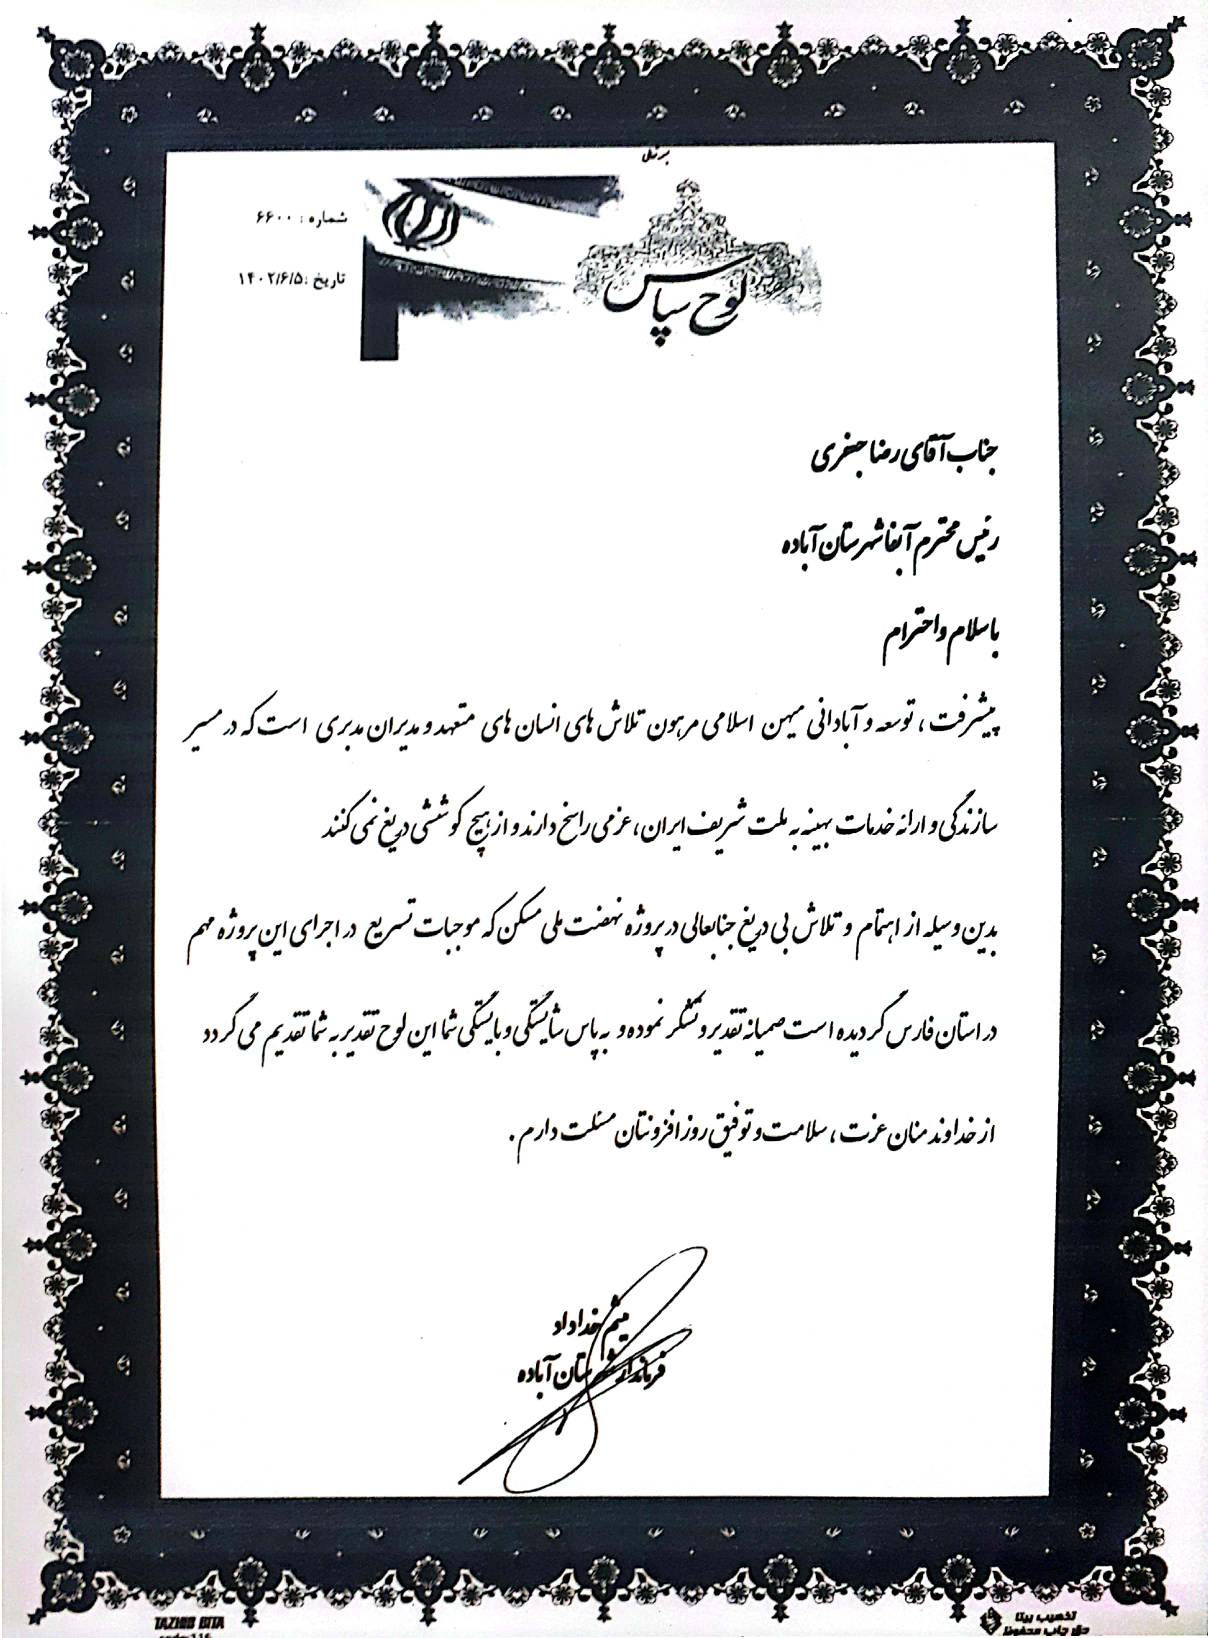 شماره : ۶۶۰۰
تاریخ :۱۴۰۲/۶/۵
لوح سپاس
جناب آقای رضا جعفری
رئیس محترم آبفا شهرستان آباده
با سلام و احترام
پیشرفت ، توسعه و آبادانی میهن اسلامی مرهون تلاش های انسان های متعهد و مدیران مدبری است که در مسیر
سازندگی و ارائه خدمات بهینه به ملت شریف ایران ، عزمی راسخ دارند و از هیچ کوششی دریغ نمی کنند
بدین وسیله از اهتمام و تلاش بی دریغ جنابعالی در پروژه نهضت ملی مسکن که موجبات تسریع در اجرای این پروژه مهم
در استان فارس گردیده است صمیانه تقدیر و تشکر نموده و به پاس شایستگی و بایستگی شما این لوح تقدیر به شما تقدیم می گردد
از خداوند منان عزت ، سلامت و توفیق روز افزونتان مسئلت دارم .
میثم خداداد
فرماندار شهرستان آباده
TAZHIB BITA
تذهیب بیتا
حق چاپ محفوظ